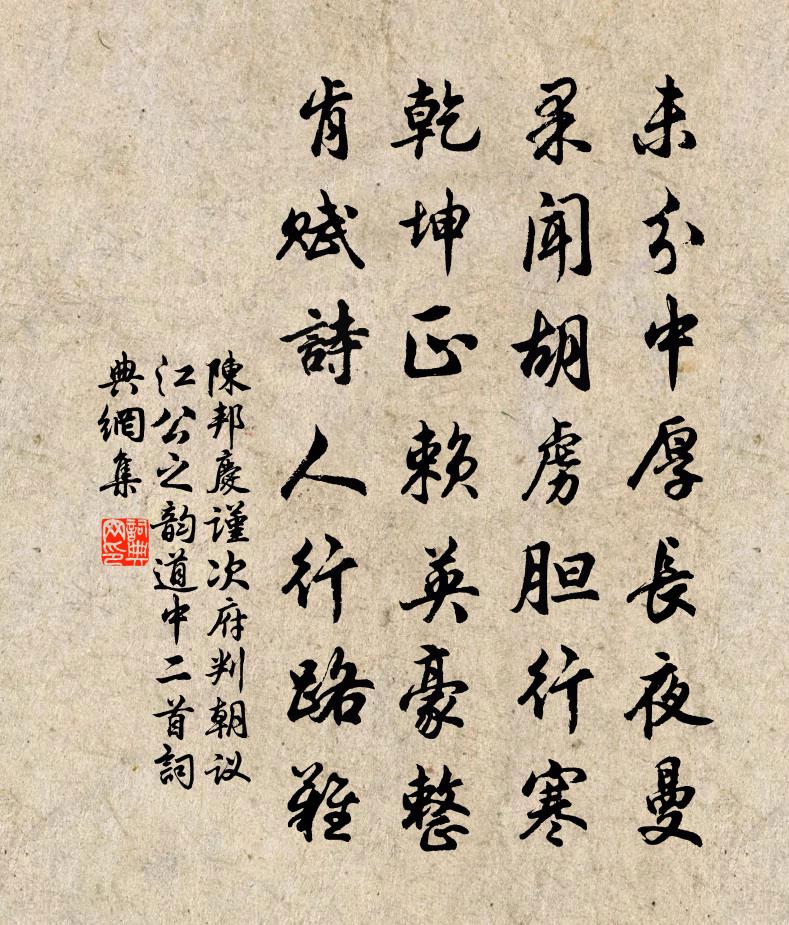 未分中厚長夜曼
果聞胡虜胆行寒
乾坤正賴英豪整
肯賦詩人行路難
陳邦慶謹次府判朝议
江公之韵道中二首詞
典網集
詞典網印